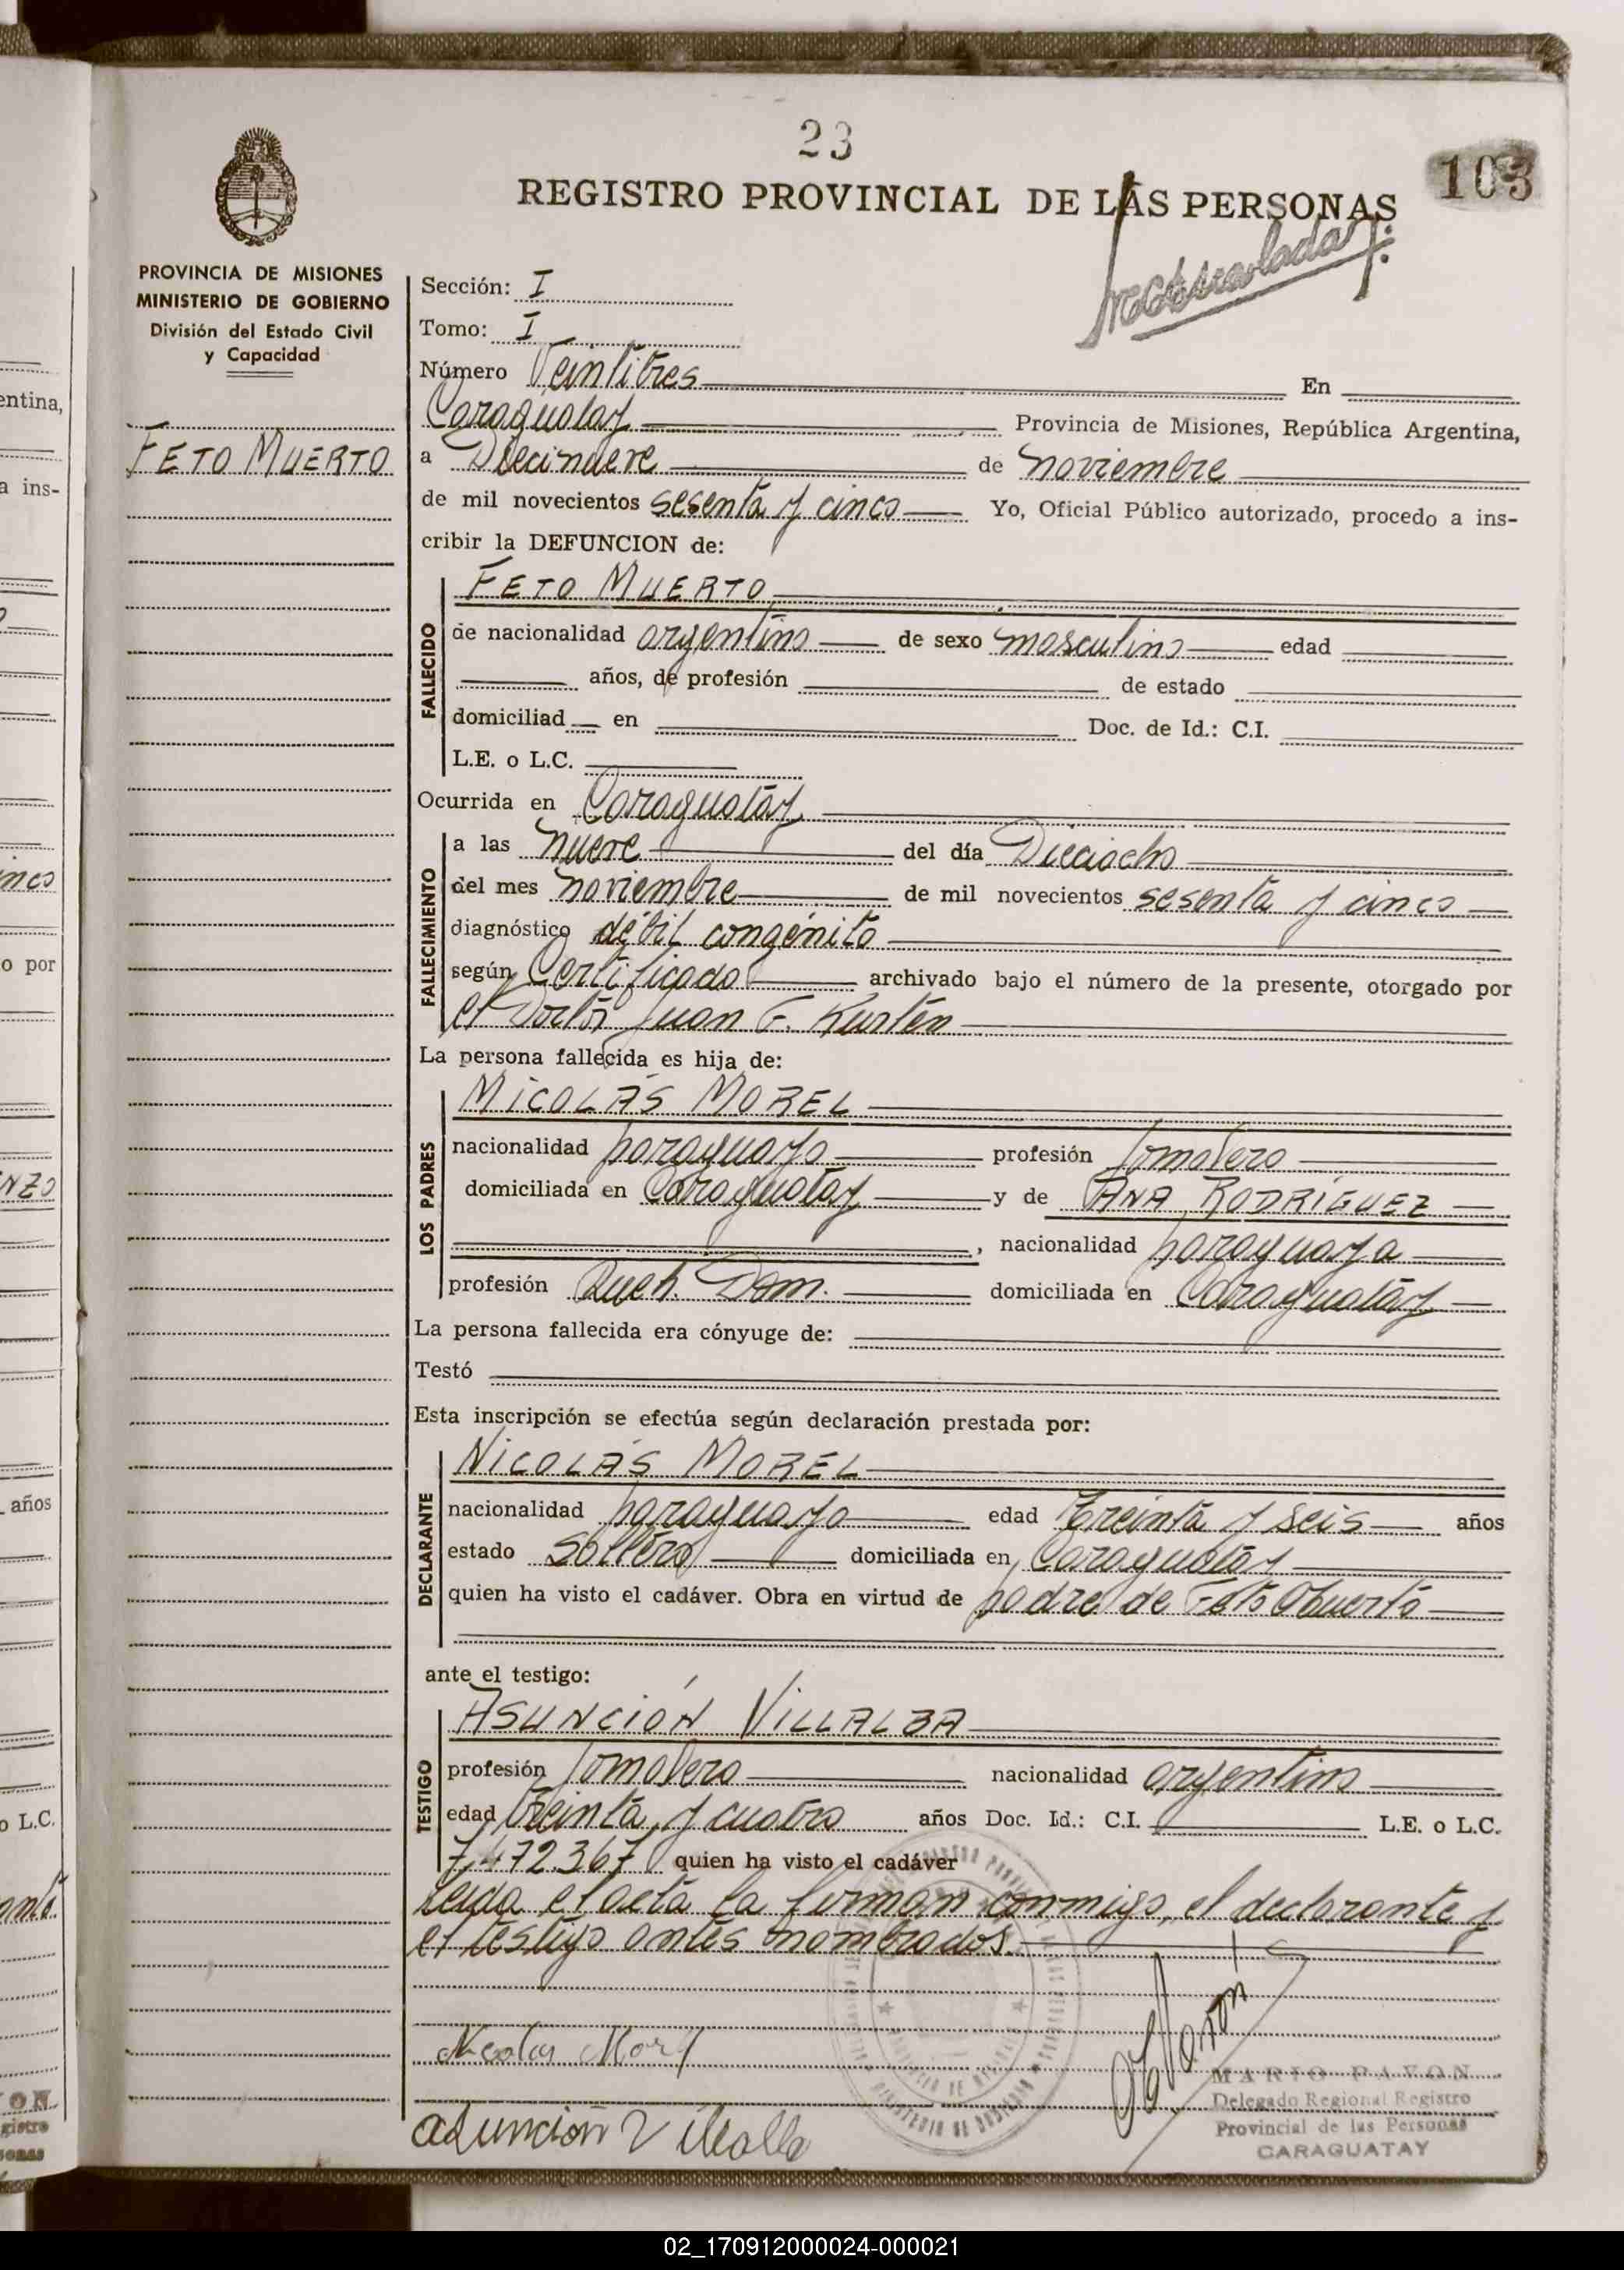 23
103
REGISTRO PROVINCIAL DE LAS PERSONAS
PROVINCIA DE MISIONES
MINISTERIO DE GOBIERNO
División del Estado Civil
y Capacidad
FETO MUERTO
Sección: I
Tomo: I
Número Veintitres En
Caraguatay Provincia de Misiones, República Argentina,
a Diecinueve de noviembre
de mil novecientos sesenta y cinco Yo, Oficial Público autorizado, procedo a ins-
cribir la DEFUNCION de:
FALLECIDO
FETO MUERTO
de nacionalidad argentino de sexo masculino edad
años, de profesión de estado
domiciliad en Doc. de Id.: C.I.
L.E. o L.C.
Ocurrida en Caraguatáy
FALLECIMIENTO
a las nueve del día Dieciocho
del mes noviembre de mil novecientos sesenta y cinco
diagnóstico débil congénito
según Certificado archivado bajo el número de la presente, otorgado por
el Doctor Juan F. Kurtén
La persona fallecida es hija de:
LOS PADRES
NICOLÁS MOREL
nacionalidad paraguayo profesión Jornalero
domiciliada en Caraguatáy y de ANA RODRÍGUEZ
, nacionalidad paraguaya
profesión Queh. Dom. domiciliada en Caraguatáy
La persona fallecida era cónyuge de:
Testó
Esta inscripción se efectúa según declaración prestada por:
DECLARANTE
NICOLÁS MOREL
nacionalidad paraguayo edad treinta y seis años
estado Soltero domiciliada en Caraguatáy
quien ha visto el cadáver. Obra en virtud de padre de Feto Muerto
ante el testigo:
TESTIGO
ASUNCIÓN VILLALBA
profesión Jornalero nacionalidad argentino
edad treinta y cuatro años Doc. Id.: C.I. L.E. o L.C.
7.472.367 quien ha visto el cadáver
leida el acta la firman conmigo, el declarante y
el testigo antes nombrados.
Nicolas Morel
Asunción Villalba
MARIO PAVON
Delegado Regional Registro
Provincial de las Personas
CARAGUATAY
02_170912000024-000021